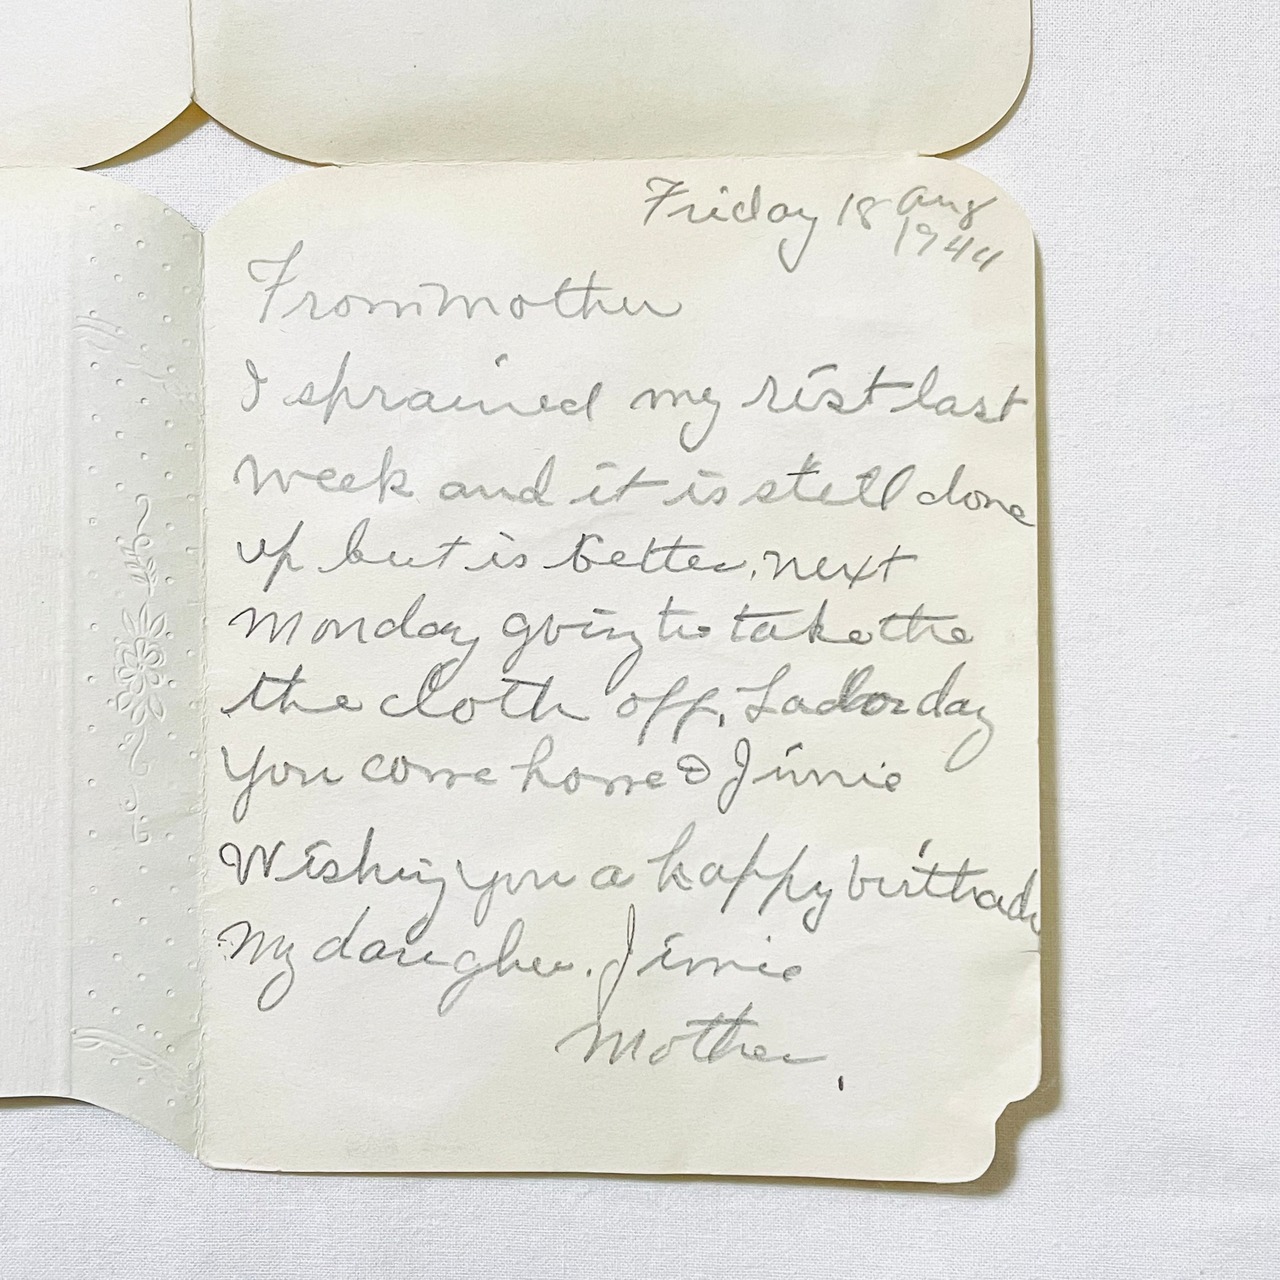 Friday 18 Aug
1944
From Mother
I sprained my rist last
week and it is still done
up but is better. next
Monday going to take the
the cloth off. Labor day
You come home & Jimie
Wishing you a happy birthady
My daugher. Jimie
Mother.